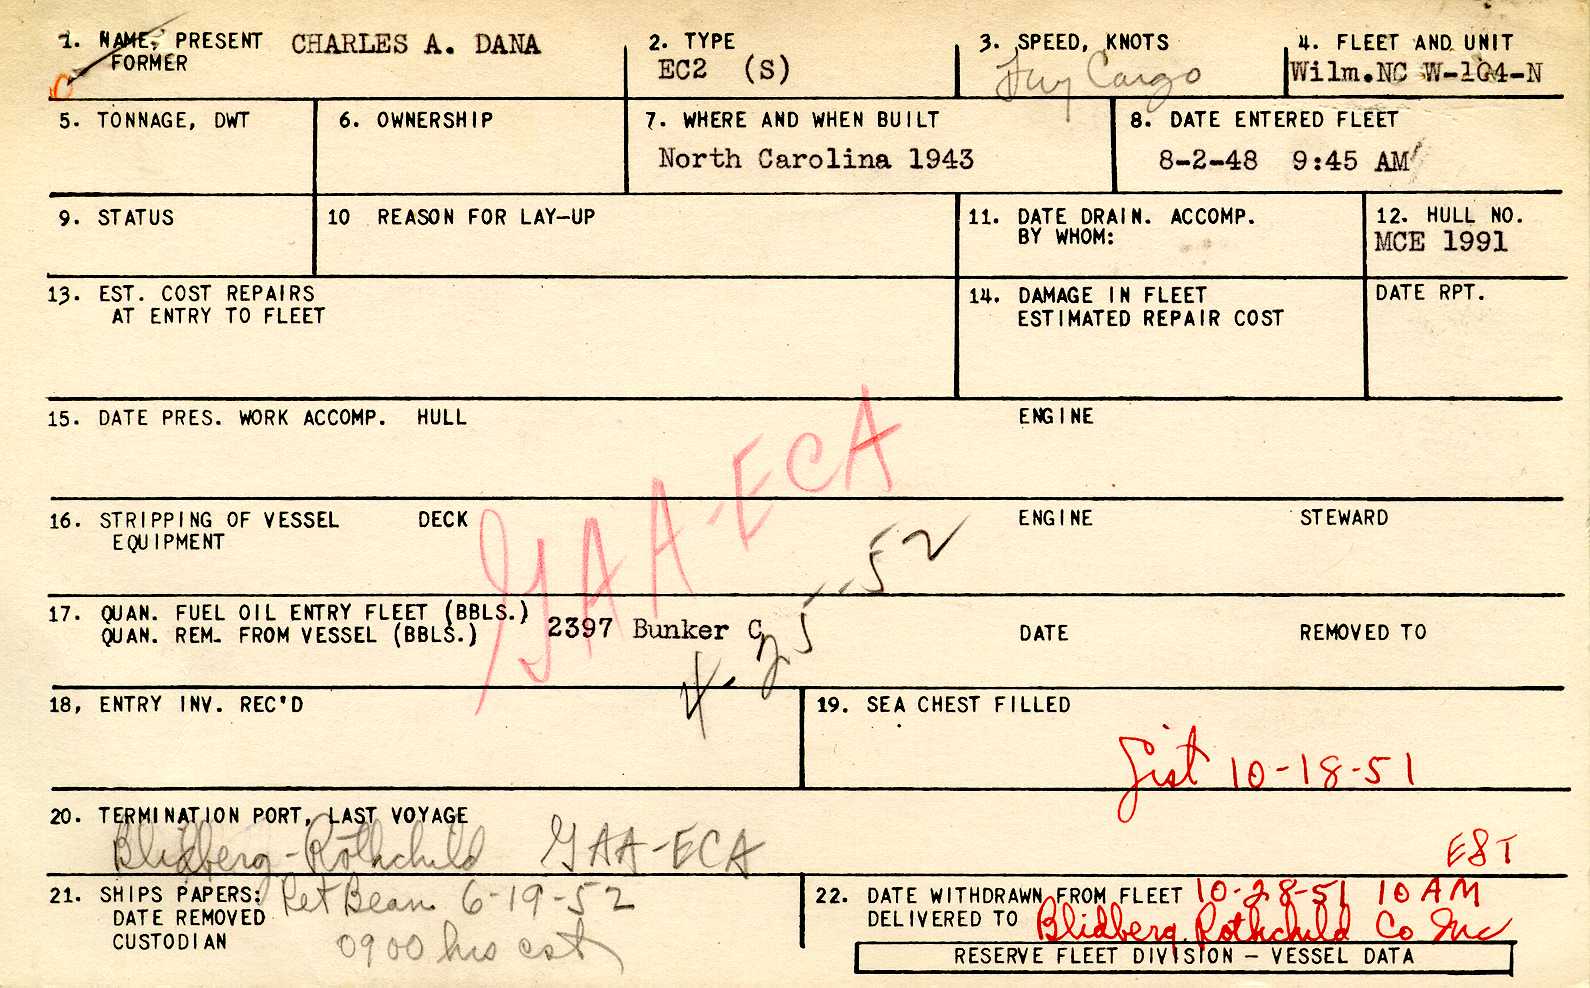 1. NAME, PRESENT CHARLES A. DANA
FORMER
2. TYPE
EC2 (S)
3. SPEED, KNOTS
Cargo
4. FLEET AND UNIT
Wilm.NC W-104-N
5. TONNAGE, DWT
6. OWNERSHIP
7. WHERE AND WHEN BUILT
North Carolina 1943
8. DATE ENTERED FLEET
8-2-48 9:45 AM
9. STATUS
10 REASON FOR LAY-UP
11. DATE DRAIN. ACCOMP.
BY WHOM:
12. HULL NO.
MCE 1991
13. EST. COST REPAIRS
AT ENTRY TO FLEET
14. DAMAGE IN FLEET
ESTIMATED REPAIR COST
DATE RPT.
15. DATE PRES. WORK ACCOMP. HULL ENGINE
GAA-ECA
16. STRIPPING OF VESSEL DECK ENGINE STEWARD
EQUIPMENT
4-25-52
17. QUAN. FUEL OIL ENTRY FLEET (BBLS.)
QUAN. REM. FROM VESSEL (BBLS.) 2397 Bunker C DATE REMOVED TO
18, ENTRY INV. REC'D
19. SEA CHEST FILLED
10-18-51
20. TERMINATION PORT, LAST VOYAGE
Blidberg-Rothchild GAA-ECA
EST
21. SHIPS PAPERS: Ret Bean 6-19-52
DATE REMOVED
CUSTODIAN 0900 hrs est
22. DATE WITHDRAWN FROM FLEET 10-28-51 10 AM
DELIVERED TO Blidberg, Rothchild Co Inc
RESERVE FLEET DIVISION - VESSEL DATA